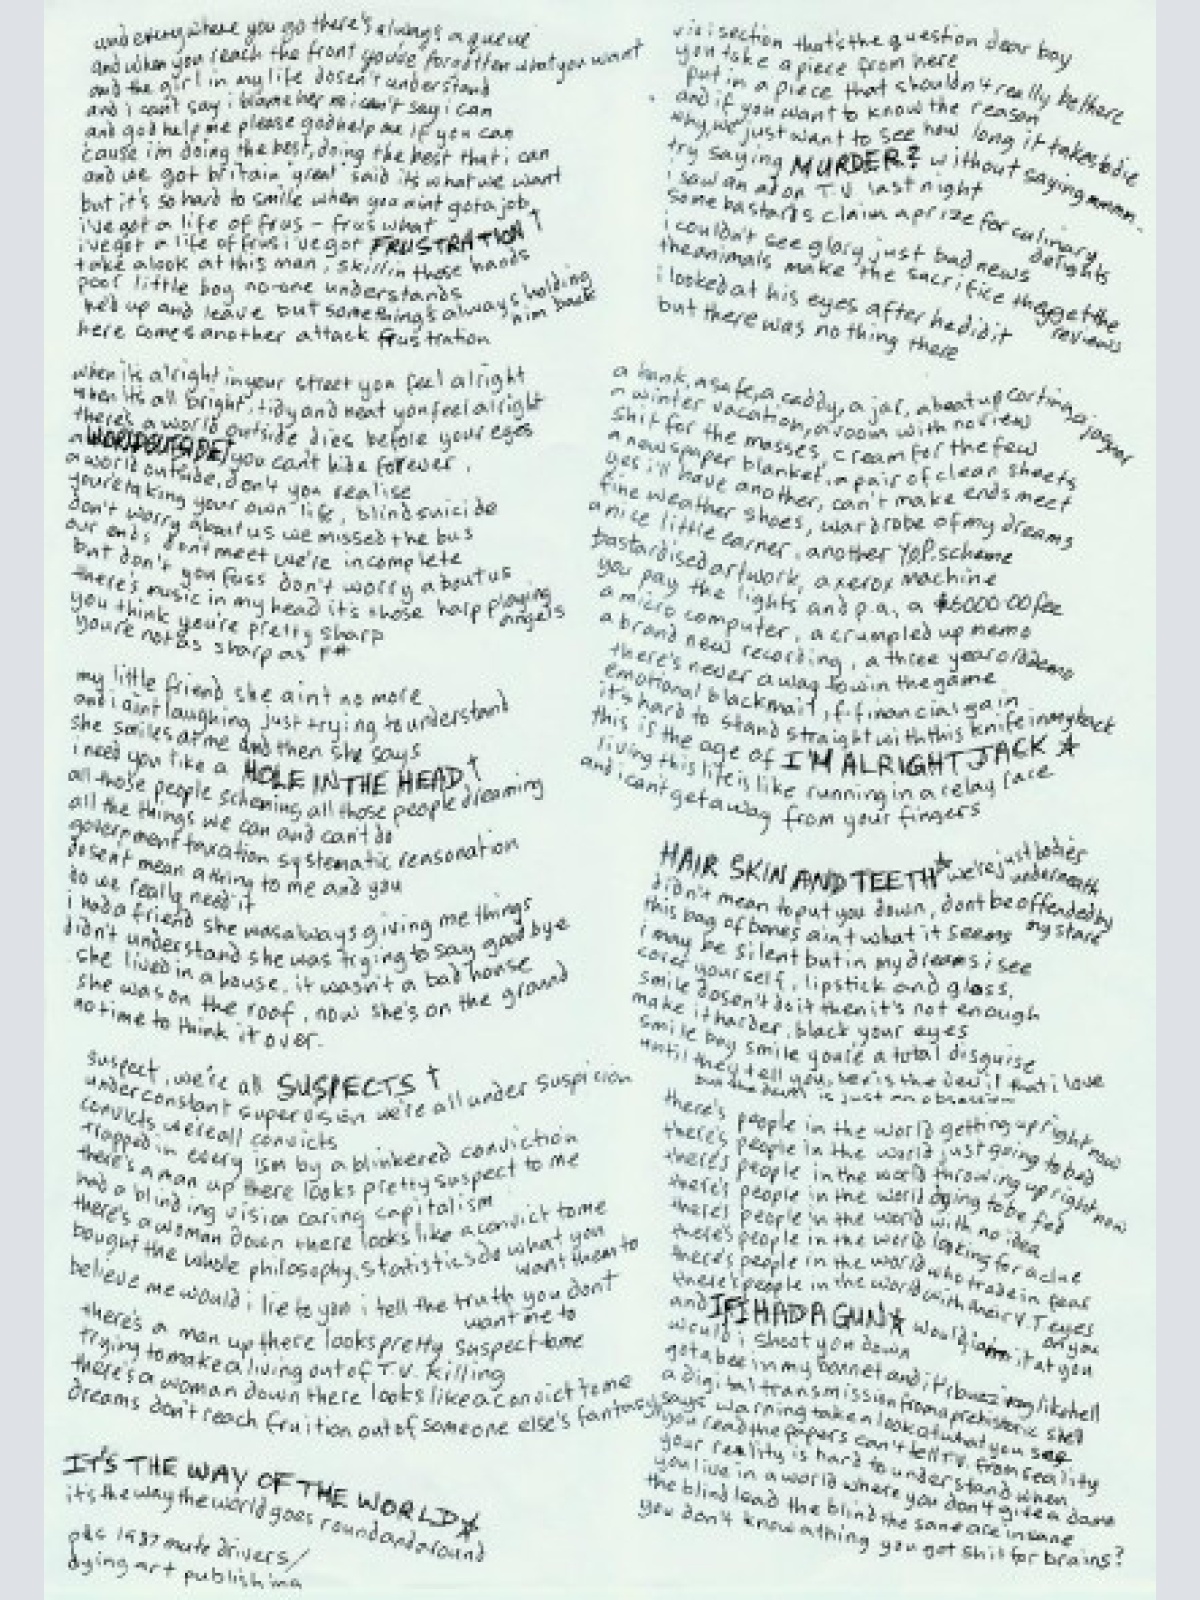 and everywhere you go there's always a queue
and when you reach the front you've forgotten what you want
and the girl in my life dosen't understand
and i can't say i blame her no i can't say i can
and god help me please god help me if you can
'cause im doing the best, doing the best that i can
and we got britain 'great' said its what we want
but it's so hard to smile when you aint got a job
i've got a life of frus - frus what
i've got a life of frus i've got FRUSTRATION †
take a look at this man, skill in those hands
poor little boy no-one understands
he'd up and leave but something's always holding
him back
here comes another attack frustration
when its alright in your street you feel alright
when its all bright, tidy and neat you feel alright
there's a world outside dies before your eyes
a WORLD OUTSIDE † you can't hide forever.
a world outside, don't you realise
you're taking your own life, blind suicide
don't worry about us we missed the bus
our ends don't meet we're incomplete
but don't you fuss don't worry about us
there's music in my head it's those harp playing
angels
you think you're pretty sharp
you're not as sharp as F#
my little friend she ain't no more
and i aint laughing just trying to understand
she smiles at me and then she says
i need you like a HOLE IN THE HEAD †
all those people scheming all those people dreaming
all the things we can and can't do
government taxation systematic rensonation
dosent mean a thing to me and you
do we really need it
i had a friend she was always giving me things
didn't understand she was trying to say good bye
she lived in a house, it wasn't a bad house
she was on the roof, now she's on the ground
no time to think it over.
suspect, we're all SUSPECTS †
under constant supervision we're all under suspicion
convicts we're all convicts
trapped in every ism by a blinkered conviction
there's a man up there looks pretty suspect to me
had a blinding vision caring capitalism
there's a woman down there looks like a convict to me
bought the whole philosophy, statistics do what you
want them to
believe me would i lie to you i tell the truth you don't
want me to
there's a man up there looks pretty suspect to me
trying to make a living out of T.V. killing
there's a woman down there looks like a convict to me
dreams don't reach fruition out of someone else's fantasy
IT'S THE WAY OF THE WORLD☆
it's the way the world goes round and around
p&c 1987 mute drivers/
dying art publishing
vivisection that's the question dear boy
you take a piece from here
put in a piece that shouldn't really be there
and if you want to know the reason
why, we just want to see how long it takes to die
try saying MURDER? without saying mmm.
i saw an ad on T.V. last night
some bastards claim a prize for culinary
delights
i couldn't see glory just bad news
the animals make the sacrifice they get the
reviews
i looked at his eyes after he did it
but there was nothing there
a bank, a safe, a caddy, a jar, a beat up cortina, a jaguar
a winter vacation, a room with no view
shit for the masses, cream for the few
a newspaper blanket, a pair of clean sheets
yes i'll have another, can't make ends meet
fine weather shoes, wardrobe of my dreams
a nice little earner, another Y.O.P. scheme
bastardised artwork, a xerox machine
you pay the lights and p.a. a $6000.00 fee
a micro computer, a crumpled up memo
a brand new recording, a three year old demo
there's never a way to win the game
emotional blackmail, f-financial gain
it's hard to stand straight with this knife in my back
this is the age of I'M ALRIGHT JACK ☆
living this life is like running in a relay race
and i can't get away from your fingers
HAIR SKIN AND TEETH☆ we're just bodies
underneath
didn't mean to put you down, dont be offended by
my stare
this bag of bones ain't what it seems
i may be silent but in my dreams i see
cover yourself, lipstick and gloss,
smile dosen't do it then it's not enough
make it harder, black your eyes
smile boy smile you're a total disguise
until they tell you, sex is the devil that i love
but the death is just an obsession
there's people in the world getting up right now
there's people in the world just going to bed
there's people in the world throwing up right now
there's people in the world dying to be fed
there's people in the world with no idea
there's people in the world looking for a clue
there's people in the world who trade in fear
there's people in the world with their V.T eyes
on you
and IF I HAD A GUN☆ would i aim it at you
would i shoot you down
got a bee in my bonnet and it's buzzing like hell
a digital transmission from a prehistoric shell
says warning take a look at what you see
you read the papers can't tell T.V. from reality
your reality is hard to understand when
you live in a world where you don't give a damn
the blind lead the blind the sane are insane
you don't know a thing you got shit for brains?